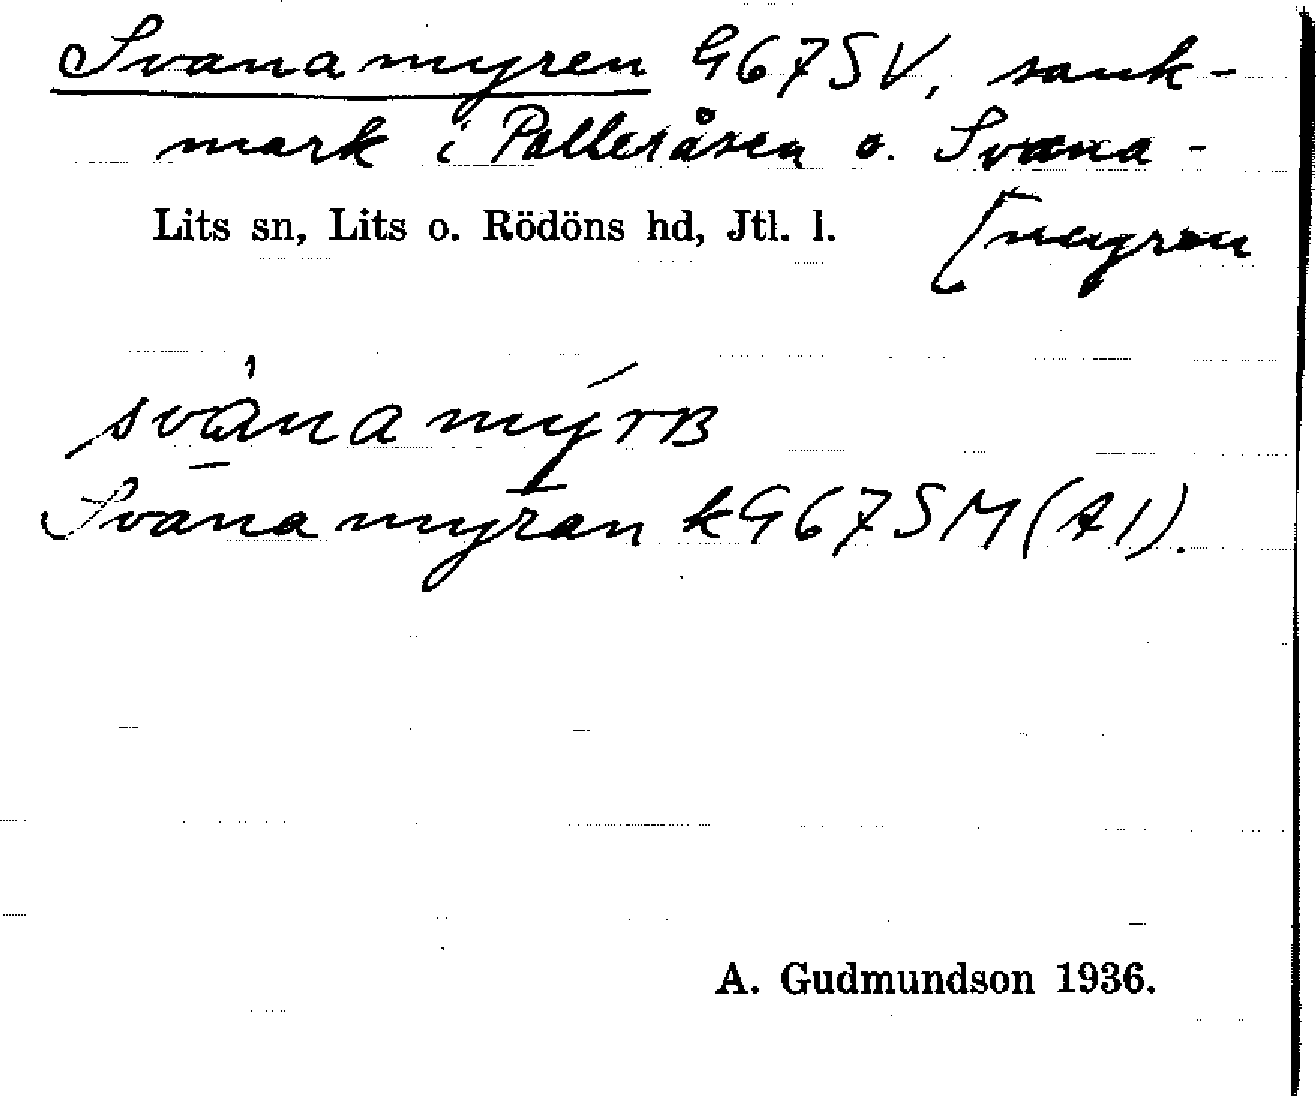 Svanamyren G67SV, sank-
mark i Pallesåsen o. Svana-
Lits sn, Lits o. Rödöns hd, Jtl. l. [myren
svánamýrв
Svanamyran kG67SM(A1).
A. Gudmundson 1936.